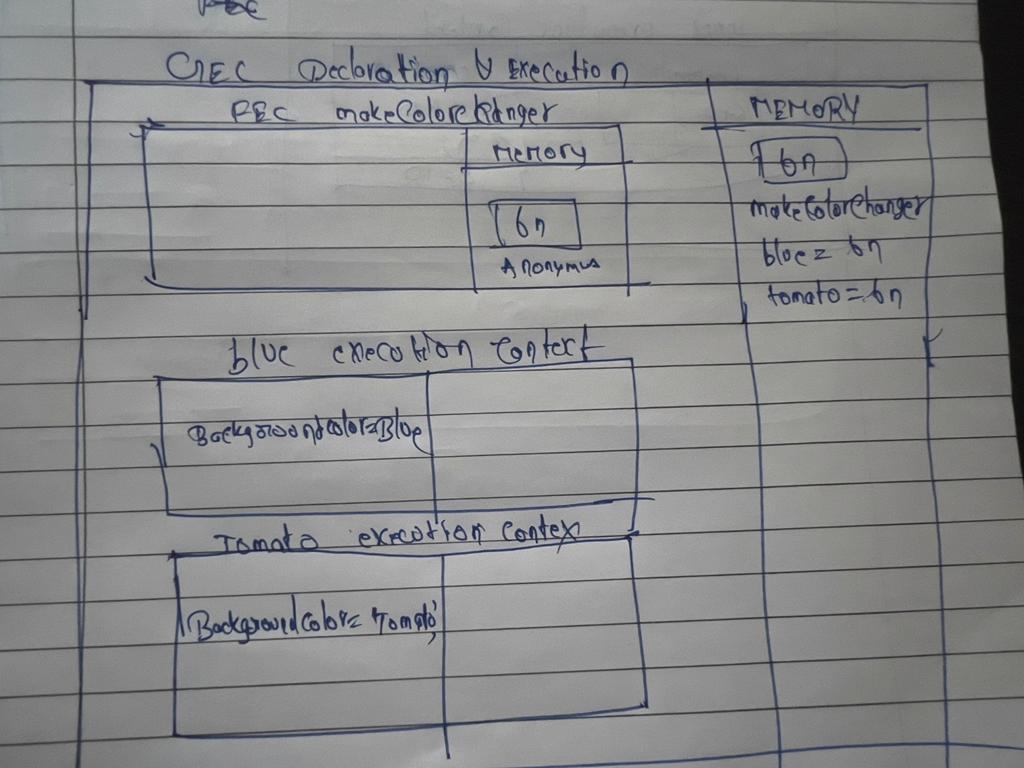 GEC Decloration & Execution
FEC makeColorChanger
MEMORY
Memory
fn
fn
makeColorChanger
Anonymus
blue = fn
tomato = fn
blue execution Context
BackgroundColor=Blue
Tomato execution Contex
BackgroundColor= 'tomato'